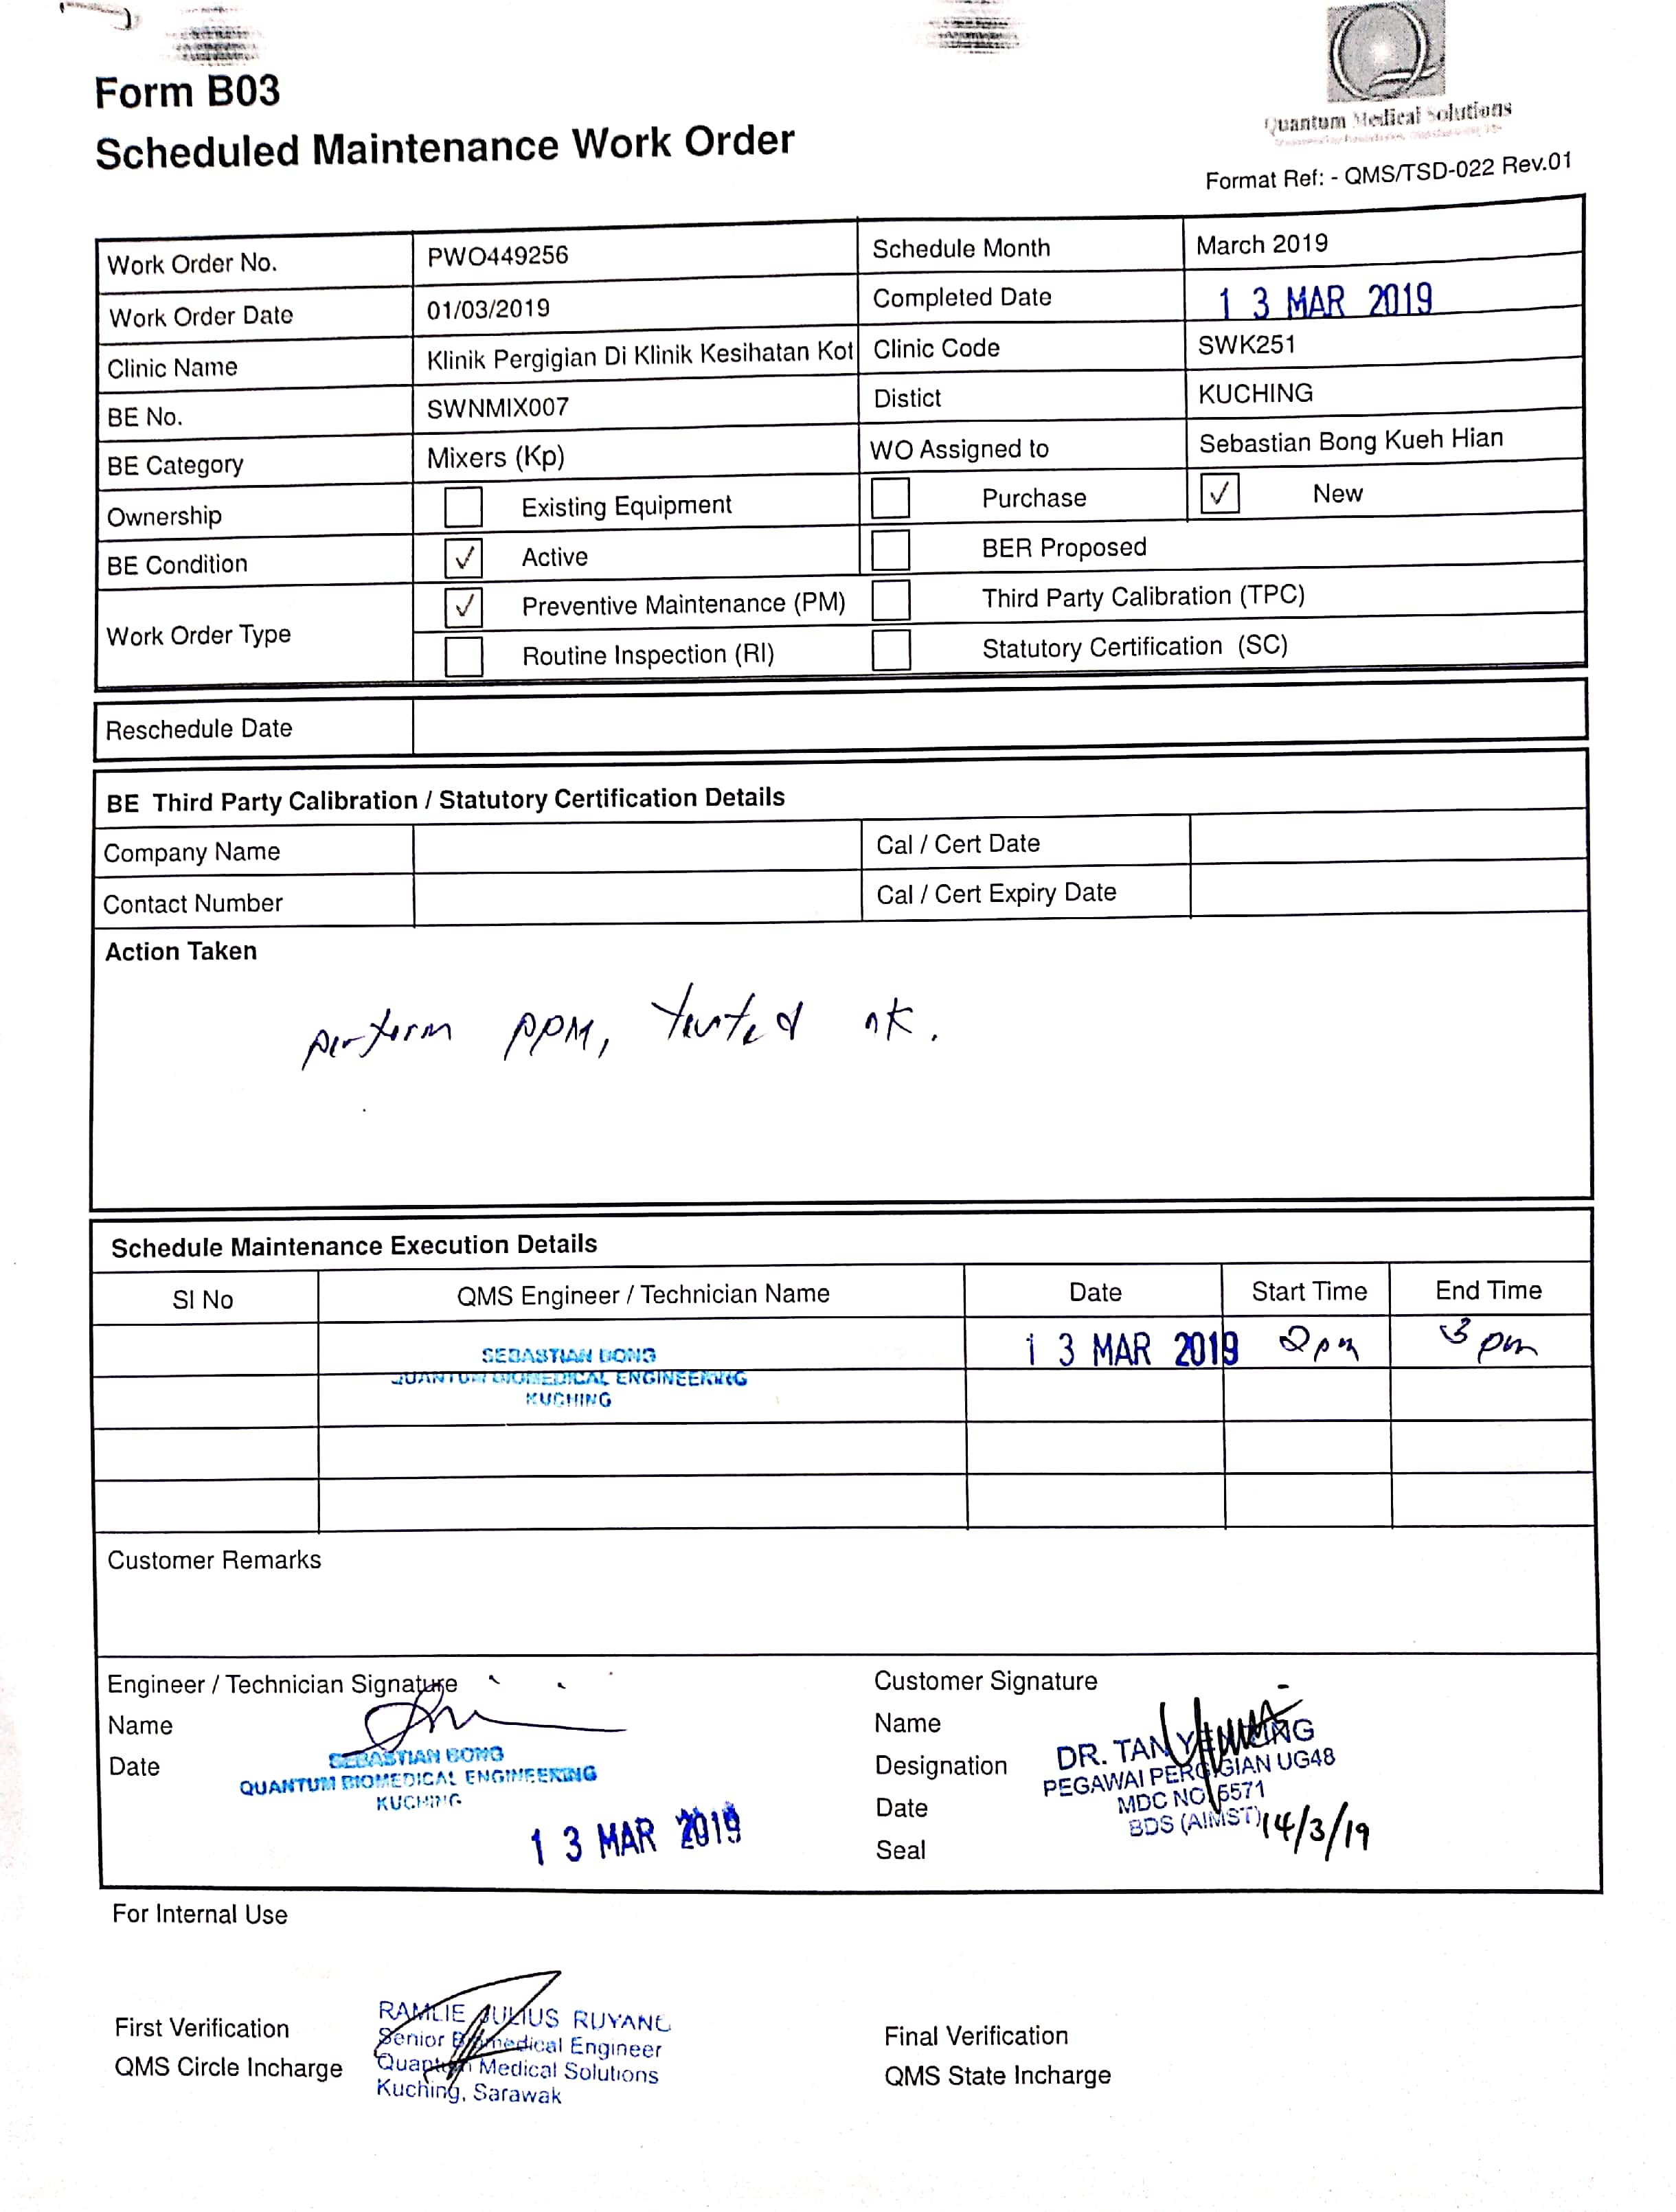 Form B03
Scheduled Maintenance Work Order
Quantum Medical Solutions
Format Ref: - QMS/TSD-022 Rev.01
Work Order No. PWO449256 Schedule Month March 2019
Work Order Date 01/03/2019 Completed Date 13 MAR 2019
Clinic Name Klinik Pergigian Di Klinik Kesihatan Kot Clinic Code SWK251
BE No. SWNMIX007 Distict KUCHING
BE Category Mixers (Kp) WO Assigned to Sebastian Bong Kueh Hian
Ownership Existing Equipment Purchase ✓ New
BE Condition ✓ Active BER Proposed
Work Order Type
✓ Preventive Maintenance (PM) Third Party Calibration (TPC)
Routine Inspection (RI) Statutory Certification (SC)
Reschedule Date
BE Third Party Calibration / Statutory Certification Details
Company Name Cal / Cert Date
Contact Number Cal / Cert Expiry Date
Action Taken
perform PPM, tested ok.
Schedule Maintenance Execution Details
SI No QMS Engineer / Technician Name Date Start Time End Time
SEBASTIAN BONG 13 MAR 2019 2pm 3pm
QUANTUM BIOMEDICAL ENGINEERING
KUCHING
Customer Remarks
Engineer / Technician Signature
Name
Date
SEBASTIAN BONG
QUANTUM BIOMEDICAL ENGINEERING
KUCHING
13 MAR 2019
Customer Signature
Name
Designation
Date
Seal
DR. TAN
PEGAWAI PERGIGIAN UG48
MDC NO 5571
BDS (AIMST) 14/3/19
For Internal Use
First Verification
QMS Circle Incharge
RAMLIE JULIUS RUYANG
Senior Biomedical Engineer
Quantum Medical Solutions
Kuching, Sarawak
Final Verification
QMS State Incharge